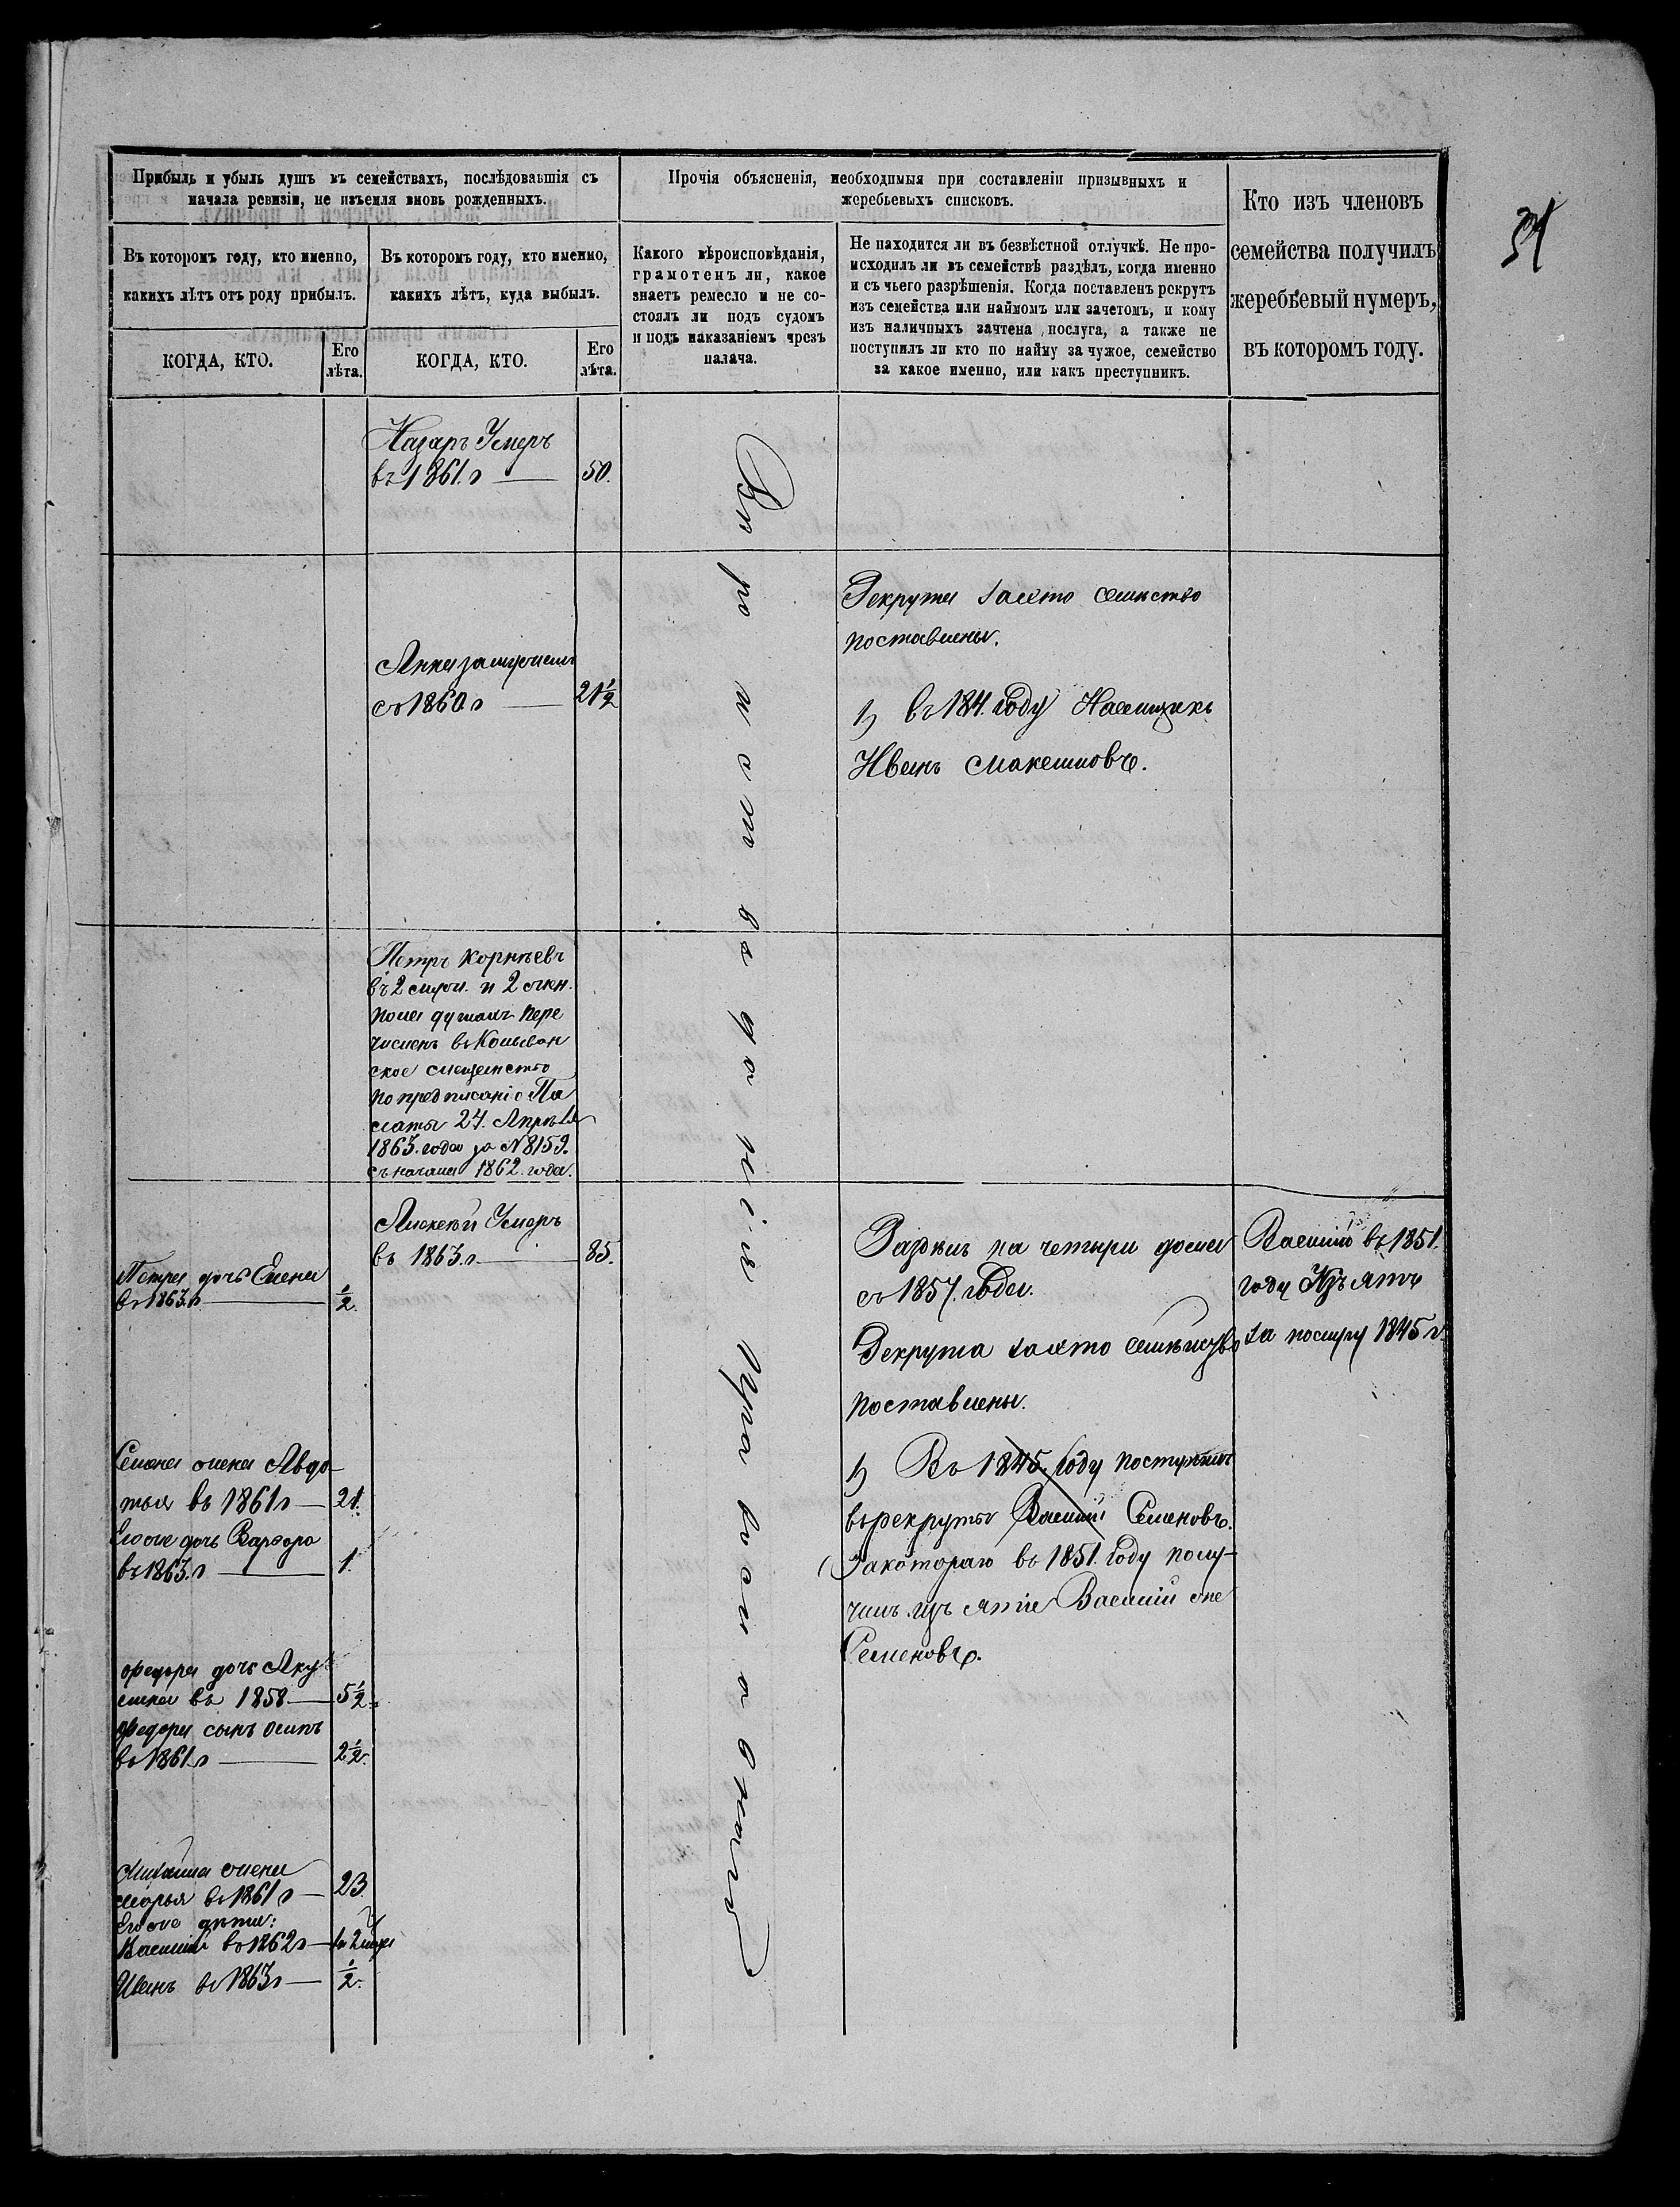 31
Прибыль и убыль душъ въ семействахъ, послѣдовавшія съ
начала ревизіи, не изъемля вновь рожденныхъ.
Прочія объясненія, необходимыя при составленіи призывныхъ и
жеребьевыхъ списковъ.
Кто изъ членовъ
семейства получилъ
жеребьевый нумеръ,
въ которомъ году.
Въ которомъ году, кто именно,
какихъ лѣтъ отъ роду прибылъ.
Въ которомъ году, кто именно,
какихъ лѣтъ, куда выбылъ.
Какого вѣроисповѣданія,
грамотенъ ли, какое
знаетъ ремесло и не со-
стоялъ ли подъ судомъ
и подъ наказаніемъ чрезъ
палача.
Не находится ли въ безвѣстной отлучкѣ. Не про-
исходилъ ли въ семействѣ раздѣлъ, когда именно
и съ чьего разрѣшенія. Когда поставленъ рекрутъ
изъ семейства или наймомъ или зачетомъ, и кому
изъ наличныхъ зачтена послуга, а также не
поступилъ ли кто по найму за чужое, семейство
за какое именно, или какъ преступникъ.
КОГДА, КТО.
Его
лѣта.
КОГДА, КТО.
Его
лѣта.
Назаръ Умеръ
въ 1861. г 50.
Вѣроисповѣданія Православнаго
Рекруты
поставлены.
Анна замужемъ
съ 1860. г 21 1/2
1) въ 184. Году
Иванъ
Петръ Корнѣевъ
въ 2 муж. и 2 жен.
пола душахъ пере
численъ въ Колыван
ское мещанство
по предписанію Па
латы 27. Апрѣля
1863. года за № 8159.
съ начала 1862. года.
Алексѣй Умеръ
въ 1863. г 85.
Раздѣлъ на четыре дома
съ 1857. Года.
Рекрута
поставлены.
Василій въ 1851.
году Изъятъ
1845 г.
Петра дочь Елена
въ 1863. г 1/2.
Семена жена Авдо-
тья въ 1861 г 21.
Его же дочь Варвара
въ 1863. г 1.
1) Въ 1845. Году поступилъ
въ рекруты Василій Семеновъ.
За котораго въ 1851. Году полу-
чилъ изъятіе Василій же
Семеновъ.
Федора дочь Аку
лина въ 1858 5 1/2
Федора сынъ Осипъ
въ 1861. г 2 1/2.
Михаила жена
Марья въ 1861 г 23.
Его же дѣти:
Василій въ 1862 г
Иванъ въ 1863 г 1/2.